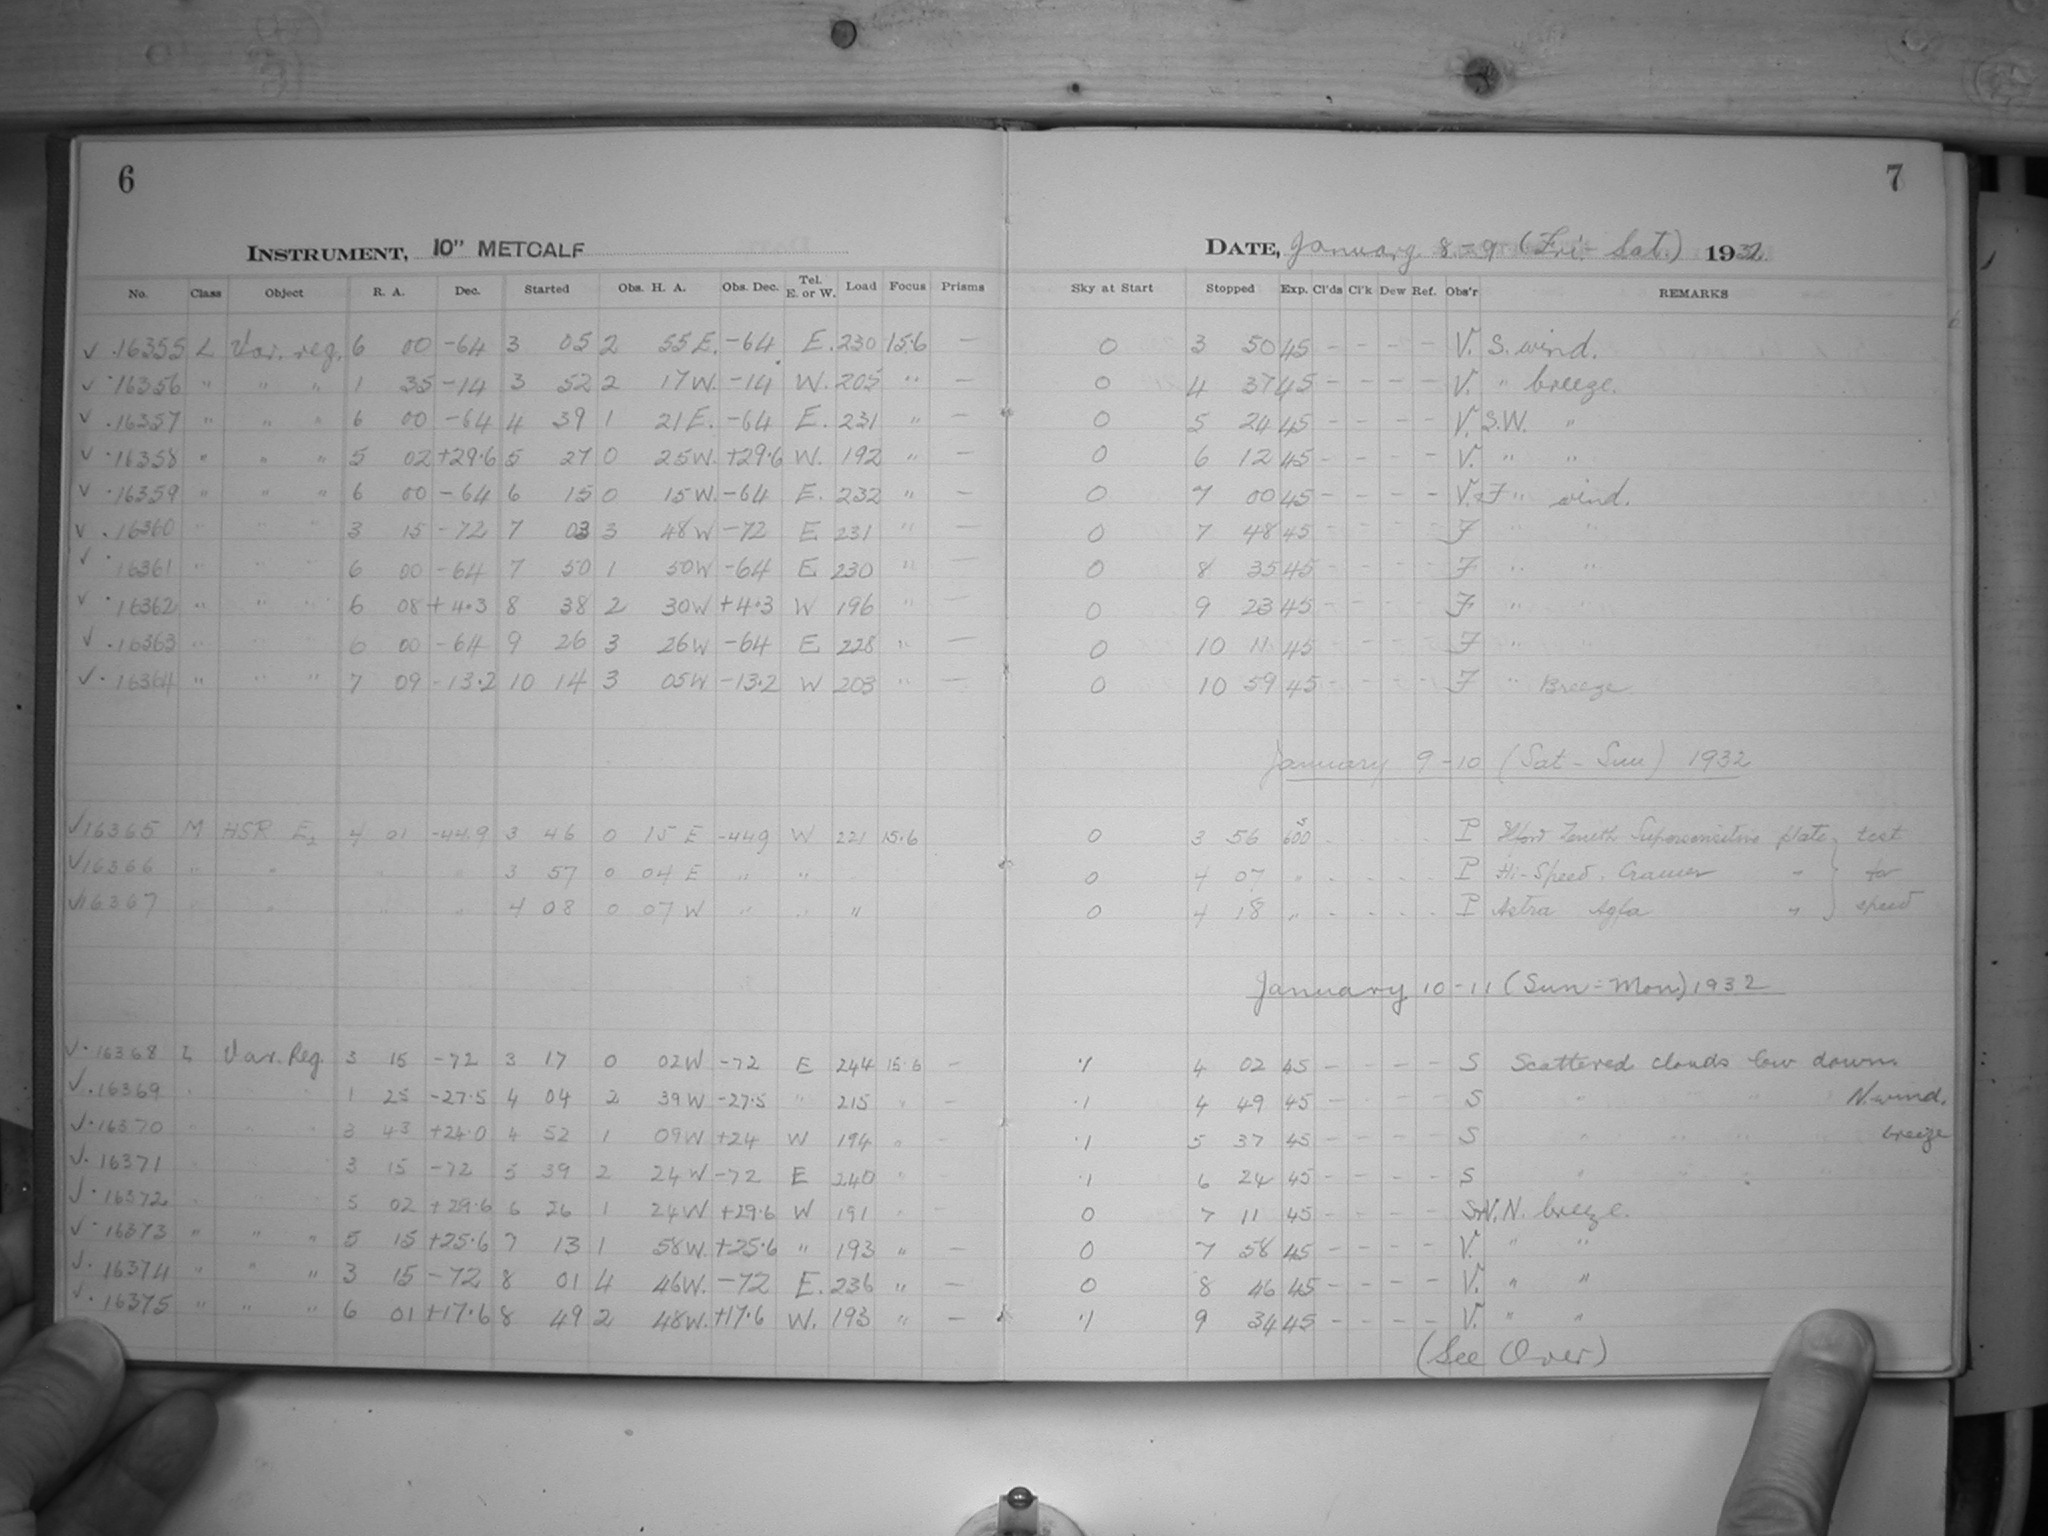 6
7
INSTRUMENT, 10" METCALF
DATE, January 8-9 (Fri- Sat.) 1932.
No. Class Object R. A. Dec. Started Obs. H. A. Obs. Dec. Tel. E. or W. Load Focus Prisms Sky at Start Stopped Exp. Cl'ds Cl'k Dew Ref. Obs'r REMARKS
√ ·16355 L Var. reg. 6 00 -64 3 05 2 55 E. -64 E. 230 15.6 — 0 3 50 45 - - - - V. S. wind.
√ ·16356 " " " 1 35 -14 3 52 2 17 W. -14 W. 205 " — 0 4 37 45 - - - - V. " breeze.
√ ·16357 " " " 6 00 -64 4 39 1 21 E. -64 E. 231 " — 0 5 24 45 - - - - V. S.W. "
√ ·16358 " " " 5 02 +29.6 5 27 0 25 W. +29.6 W. 192 " — 0 6 12 45 - - - - V. " "
√ ·16359 " " " 6 00 -64 6 15 0 15 W. -64 E. 232 " — 0 7 00 45 - - - - V.&F " wind.
√ ·16360 " " " 3 15 -72 7 03 3 48 W -72 E 231 " — 0 7 48 45 - - - - F " "
√ ·16361 " " " 6 00 -64 7 50 1 50 W -64 E 230 " — 0 8 35 45 - - - - F " "
√ ·16362 " " " 6 08 +4.3 8 38 2 30 W +4.3 W 196 " — 0 9 23 45 - - - - F " "
√ ·16363 " " " 6 00 -64 9 26 3 26 W -64 E 228 " — 0 10 11 45 - - - - F "
√ ·16364 " " " 7 09 -13.2 10 14 3 05 W -13.2 W 203 " — 0 10 59 45 - - - - F " Breeze
January 9-10 (Sat-Sun) 1932
√16365 M HSR E2 4 01 -44.9 3 46 0 15 E -449 W 221 15.6 0 3 56 600s - - - - P Ilford Zenith Supersensitive plate } test
√16366 " " " " 3 57 0 04 E " " 0 4 07 " - - - - P Hi-Speed. Cramer " } for
√16367 " " " 4 08 0 07 W " " " 0 4 18 " - - - - P Astra Agfa " } speed
January 10-11 (Sun-Mon) 1932
√·16368 L Var. Reg. 3 15 -72 3 17 0 02 W -72 E 244 15.6 - ·1 4 02 45 - - - - S Scattered clouds low down.
√·16369 " " " 1 25 -27.5 4 04 2 39 W -27.5 " 215 " - ·1 4 49 45 - - - - S " " " N. wind.
√·16370 " " " 3 43 +24.0 4 52 1 09 W +24 W 194 " - ·1 5 37 45 - - - - S " " " " breeze
√·16371 " " 3 15 -72 5 39 2 24 W -72 E 240 " ·1 6 24 45 - - - - S " " " "
√·16372 " " 5 02 +29.6 6 26 1 24 W +29.6 W 191 " - 0 7 11 45 - - - - S&V. N. breeze.
√·16373 " " " 5 15 +25.6 7 13 1 58 W. +25.6 " 193 " — 0 7 58 45 - - - - V. " "
√·16374 " " " 3 15 -72 8 01 4 46 W. -72 E. 236 " — 0 8 46 45 - - - - V. " "
√·16375 " " " 6 01 +17.6 8 49 2 48 W. +17.6 W. 193 " — ·1 9 34 45 - - - - V. " "
(See Over)